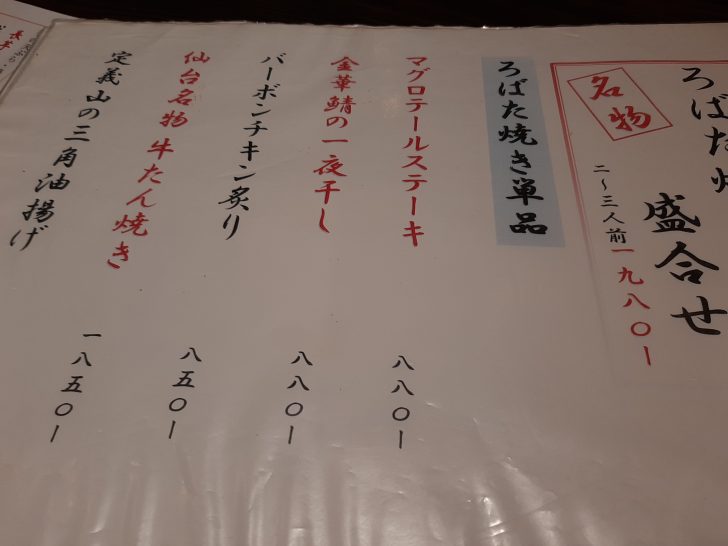 ろばた焼
盛合せ
名物
二〜三人前 一九八〇ー
ろばた焼き単品
マグロテールステーキ 八八〇ー
金華鯖の一夜干し 八八〇ー
バーボンチキン炙り 八五〇ー
仙台名物 牛たん焼き 一八五〇ー
定義山の三角油揚げ